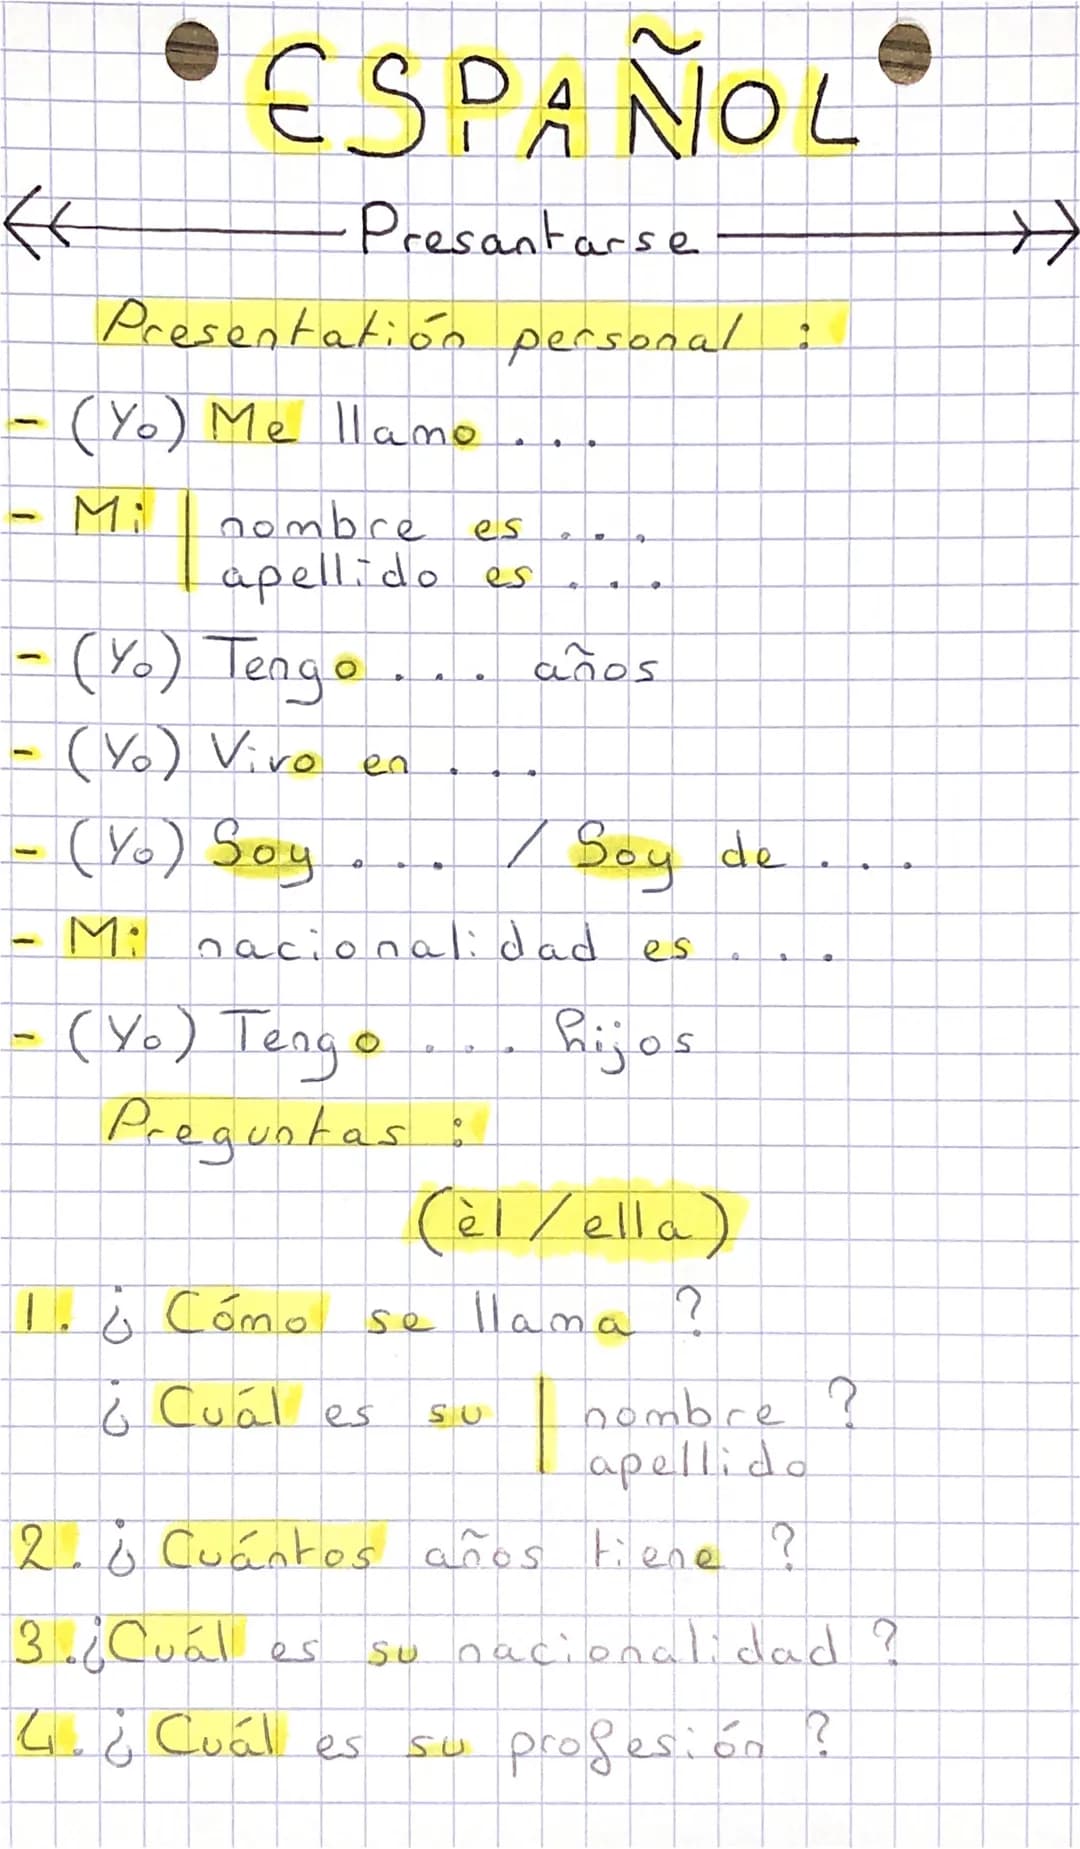 ESPAÑOL
Presantarse
Presentatión personal :
- (Yo) Me llamo ...
- Mi | nombre es ...
apellido es ...
- (Yo) Tengo .... años
- (Yo) Vivo en ....
- (Yo) Soy .... / Soy de ....
- Mi nacionalidad es ....
- (Yo) Tengo .... hijos
Preguntas :
(èl / ella)
1. ¿ Cómo se llama ?
¿ Cuál es su | nombre ?
apellido
2. ¿ Cuántos años tiene ?
3. ¿Cuál es su nacionalidad ?
4. ¿ Cuál es su profesión ?